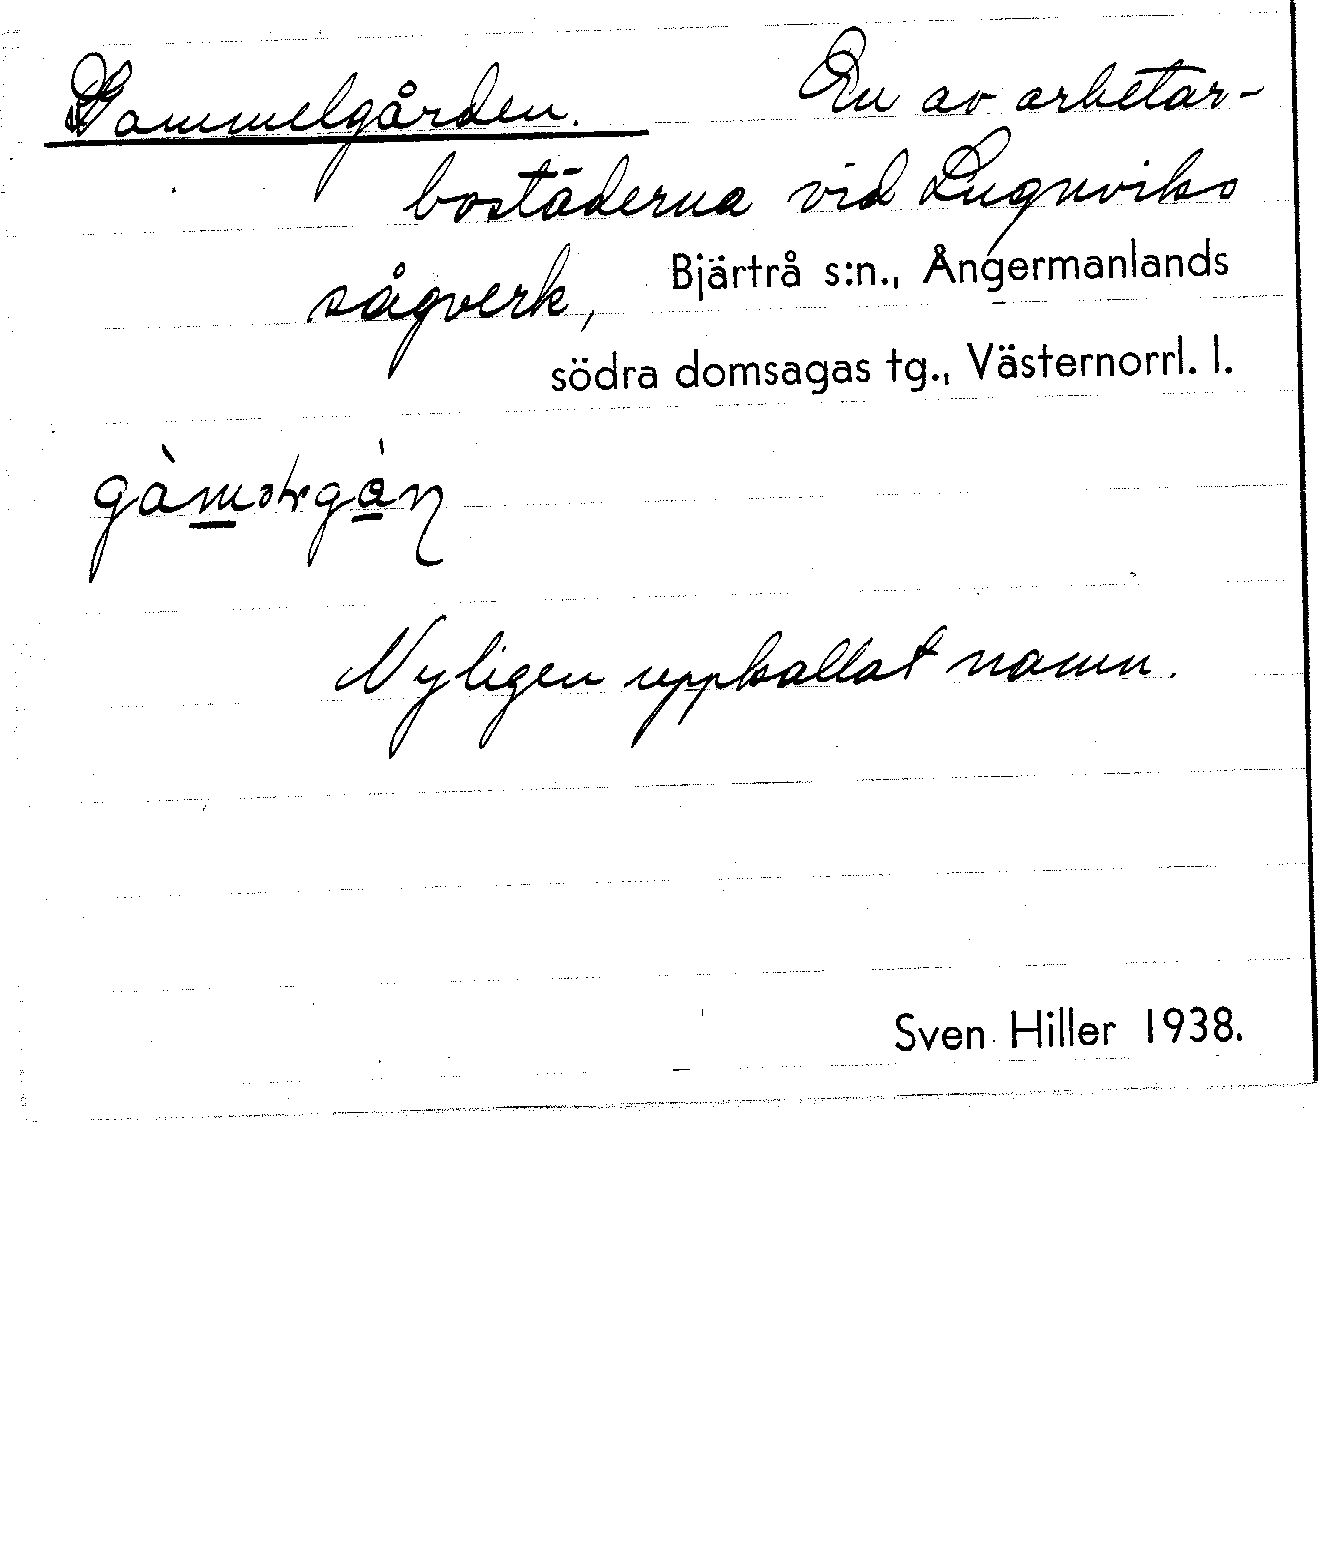 Gammelgården. En av arbetar-
bostäderna vid Lugnviks
sågverk, Bjärtrå s:n., Ångermanlands
södra domsagas tg., Västernorrl. l.
Nyligen uppkallat namn.
Sven Hiller 1938.